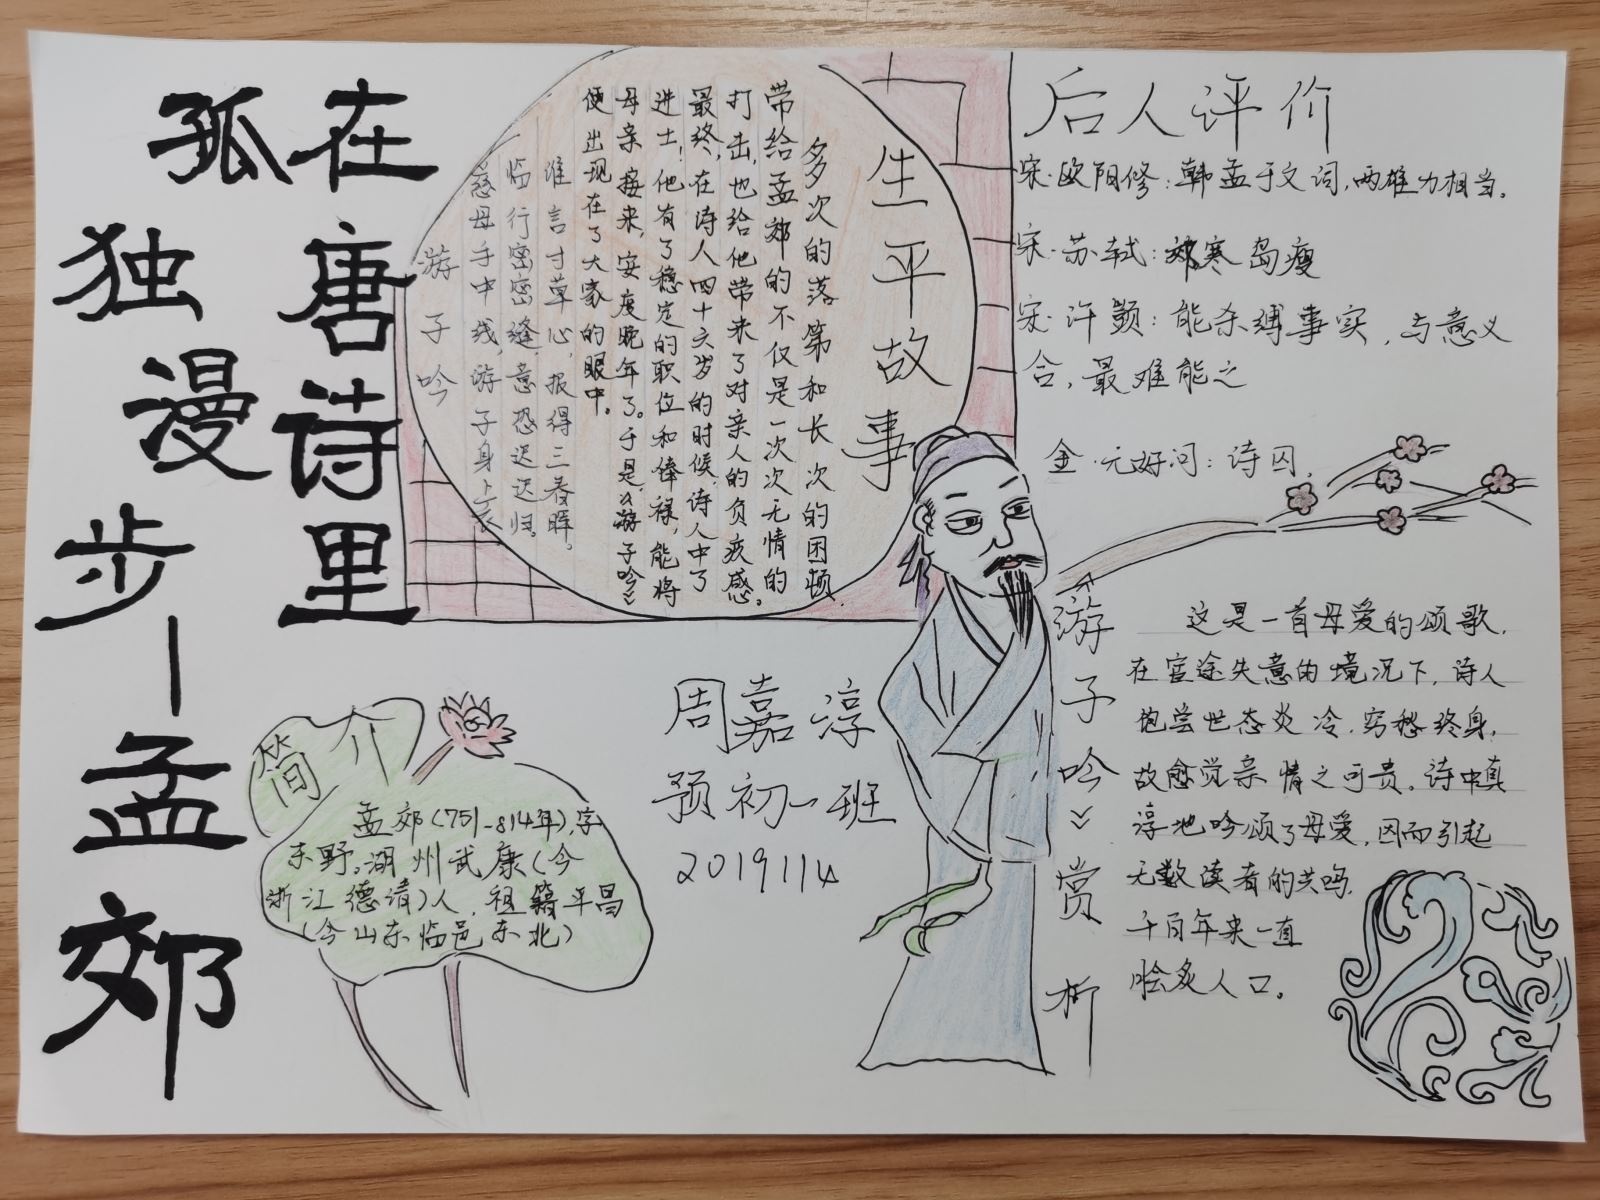 在唐诗里
孤独漫步—孟郊
生平故事
多次的落第和长次的困顿
带给孟郊的不仅是一次次无情的
打击,也给他带来了对亲人的负疚感。
最终,在诗人四十六岁的时候,诗人中了
进士!他有了稳定的职位和俸禄,能将
母亲接来,安度晚年了。于是,《游子吟》
便出现在了大家的眼中。
谁言寸草心,报得三春晖。
临行密密缝,意恐迟迟归。
慈母手中线,游子身上衣
游子吟
后人评价
宋·欧阳修:韩孟于文词,两雄力相当。
宋·苏轼:郊寒岛瘦
宋·许顗:能杀缚事实,与意义
合,最难能之
金·元好问:诗囚,
《游子吟》赏析
这是一首母爱的颂歌,
在宦途失意的境况下,诗人
饱尝世态炎冷,穷愁终身,
故愈觉亲情之可贵。诗中真
淳地吟颂了母爱,因而引起
无数读者的共鸣,
千百年来一直
脍炙人口。
简介
孟郊(751-814年),字
东野。湖州武康(今
浙江德清)人,祖籍平昌
(今山东临邑东北)
周嘉淳
预初一班
20191114